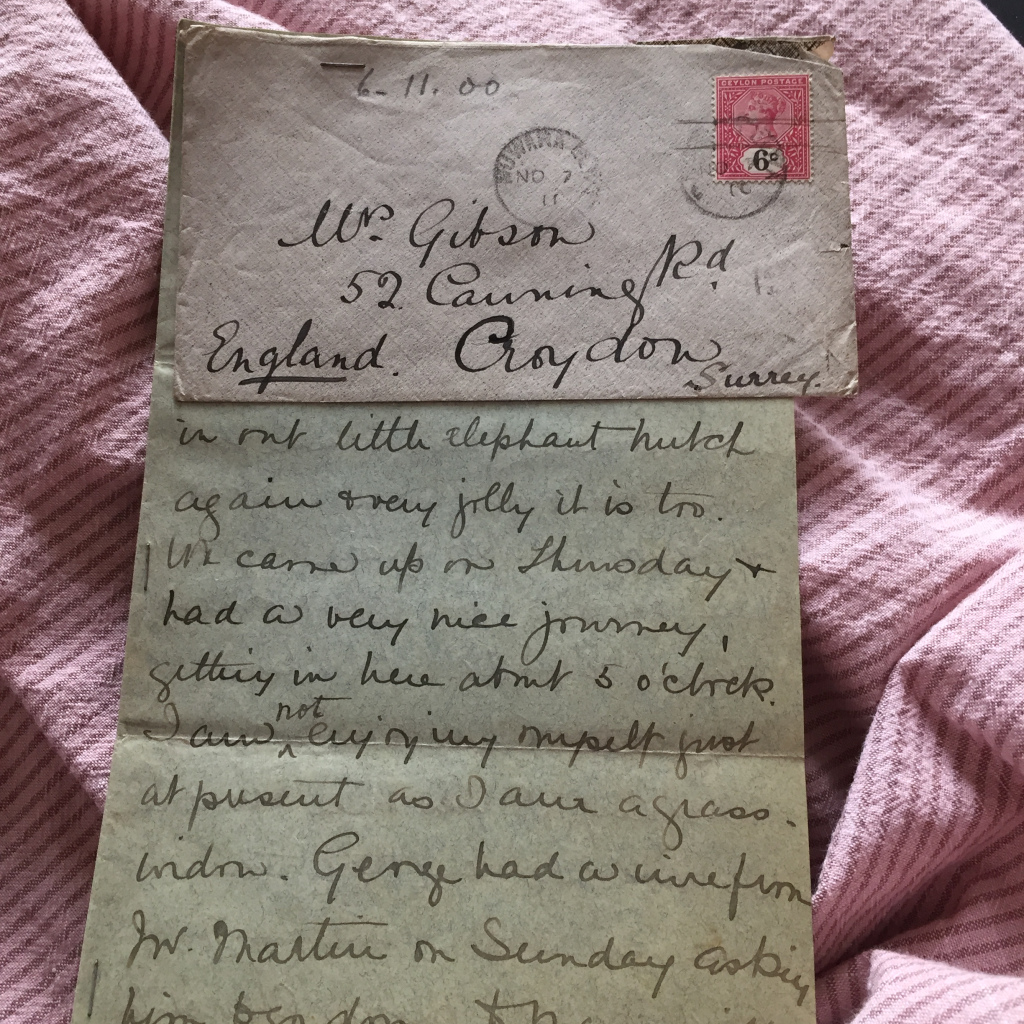 6-11.00
CEYLON POSTAGE
6c
NO 7
Mrs. Gibson
52 Canning Rd
England. Croydon
Surrey.
in our little elephant hutch
again & very jolly it is too.
We came up on Thursday &
had a very nice journey,
getting in here about 5 o'clock.
not
I am ^ enjoying myself just
at present as I am a grass-
widow. George had a wire from
Mr. Martin on Sunday asking
him to go down